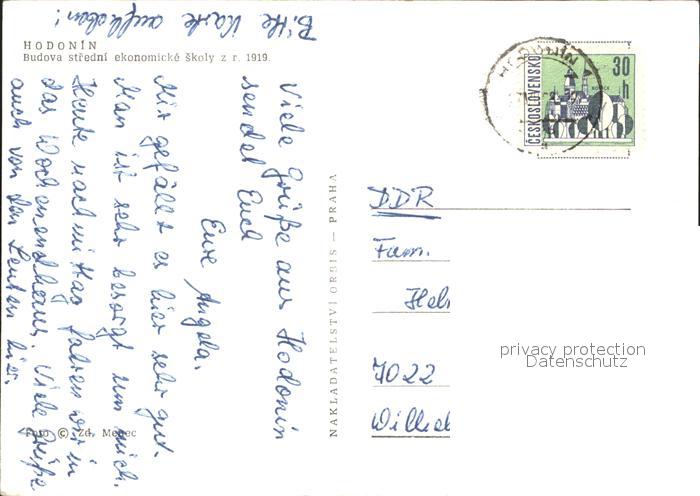 Bitte Karte aufheben!
HODONÍN
Budova střední ekonomické školy z r. 1919.
Viele Grüße aus Hodonín
sendet Euch
Eure Angela.
Mir gefällt es hier sehr gut.
Man ist sehr besorgt um mich.
Heute nachmittag fahren wir in
das Wochenendhaus. Viele Grüße
auch von den Leuten hier.
Foto © Zd. Menec
NAKLADATELSTVÍ ORBIS — PRAHA
HODONÍN
ČESKOSLOVENSKO
30 h
DDR
Fam.
Hel
7022
privacy protection
Datenschutz